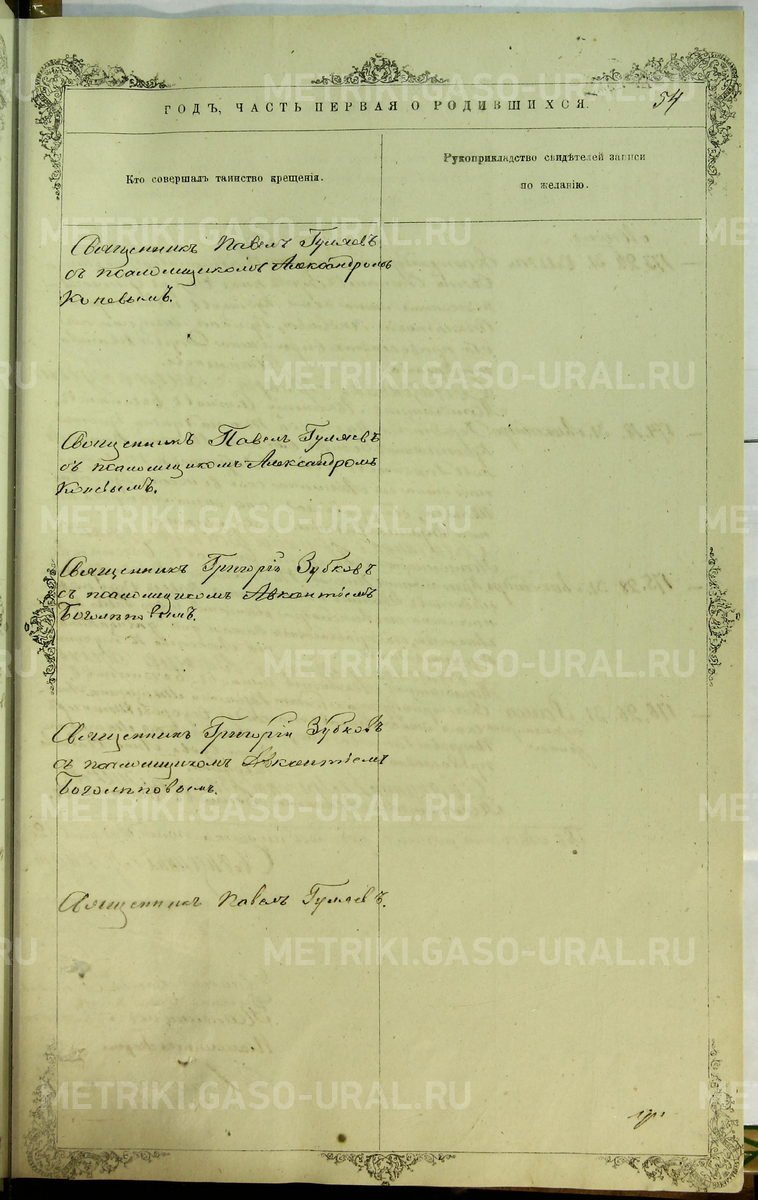 ГОДЪ, ЧАСТЬ ПЕРВАЯ О РОДИВШИХСЯ. 54
Кто совершалъ таинство крещенія.
Рукоприкладство свидѣтелей записи
по желанію.
Священникъ Павелъ Гуляевъ
съ псаломщикомъ Александромъ
Коневымъ.
Священникъ Павелъ Гуляевъ
съ псаломщикомъ Александромъ
Коневымъ.
Священникъ Григорій Зубковъ
съ псаломщикомъ Авксентіемъ
Боголѣповымъ.
Священникъ Григорій Зубковъ
съ псаломщикомъ Авксентіемъ
Боголѣповымъ.
Священникъ Павелъ Гуляевъ.
METRIKI.GASO-URAL.RU